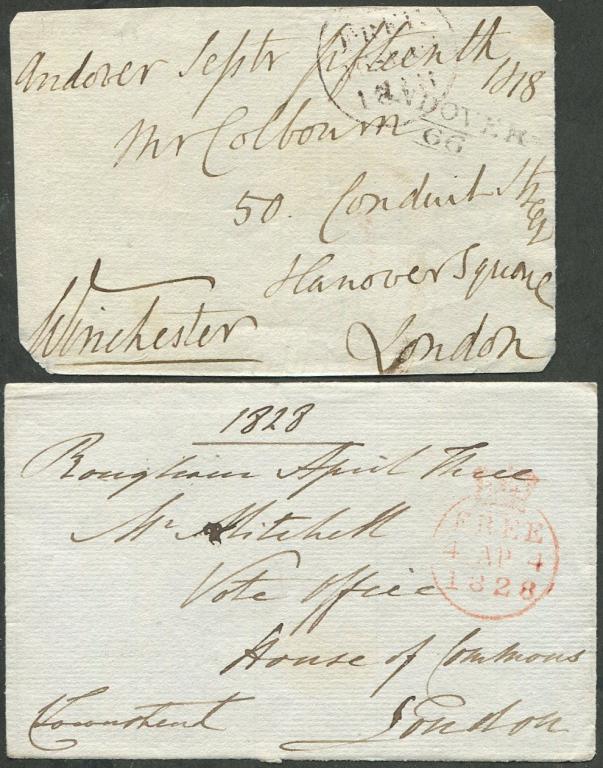 Andover Septr fifteenth 1818
FREE
1818
ANDOVER
66
Mr Colbourn
50. Conduit Street
Hanover Square
Winchester
London
1828
Rougham April Three
FREE
4 AP 4
1828
Mr Mitchell
Vote Office
House of Commons
Townshend
London